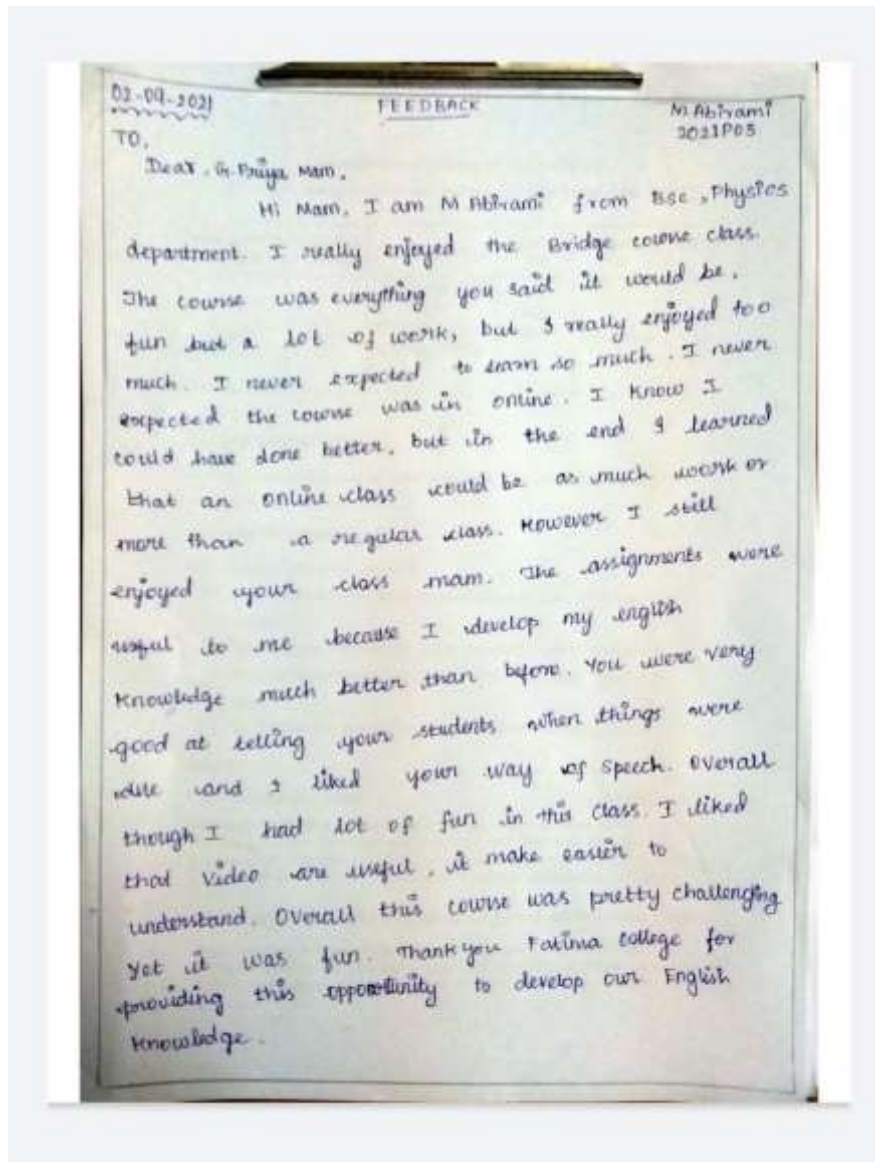 02-09-2021
FEEDBACK
M Abirami
2021P05
TO,
Dear. G. Priya Mam,
Hi Mam, I am M Abirami from Bsc, Physics
department. I really enjoyed the Bridge course class.
The course was everything you said it would be.
fun but a lot of work, but I really enjoyed too
much. I never expected to learn so much. I never
expected the course was in online. I know I
could have done better, but in the end I learned
that an online class would be as much work or
more than a regular class. However I still
enjoyed your class mam. The assignments were
useful to me because I develop my english
knowledge much better than before. You were very
good at telling your students when things were
due and I liked your way of speech. Overall
though I had lot of fun in this class. I liked
that video are useful, it make easier to
understand. Overall this course was pretty challenging
Yet it was fun. Thank you Fatima College for
providing this opportunity to develop our English
Knowledge.